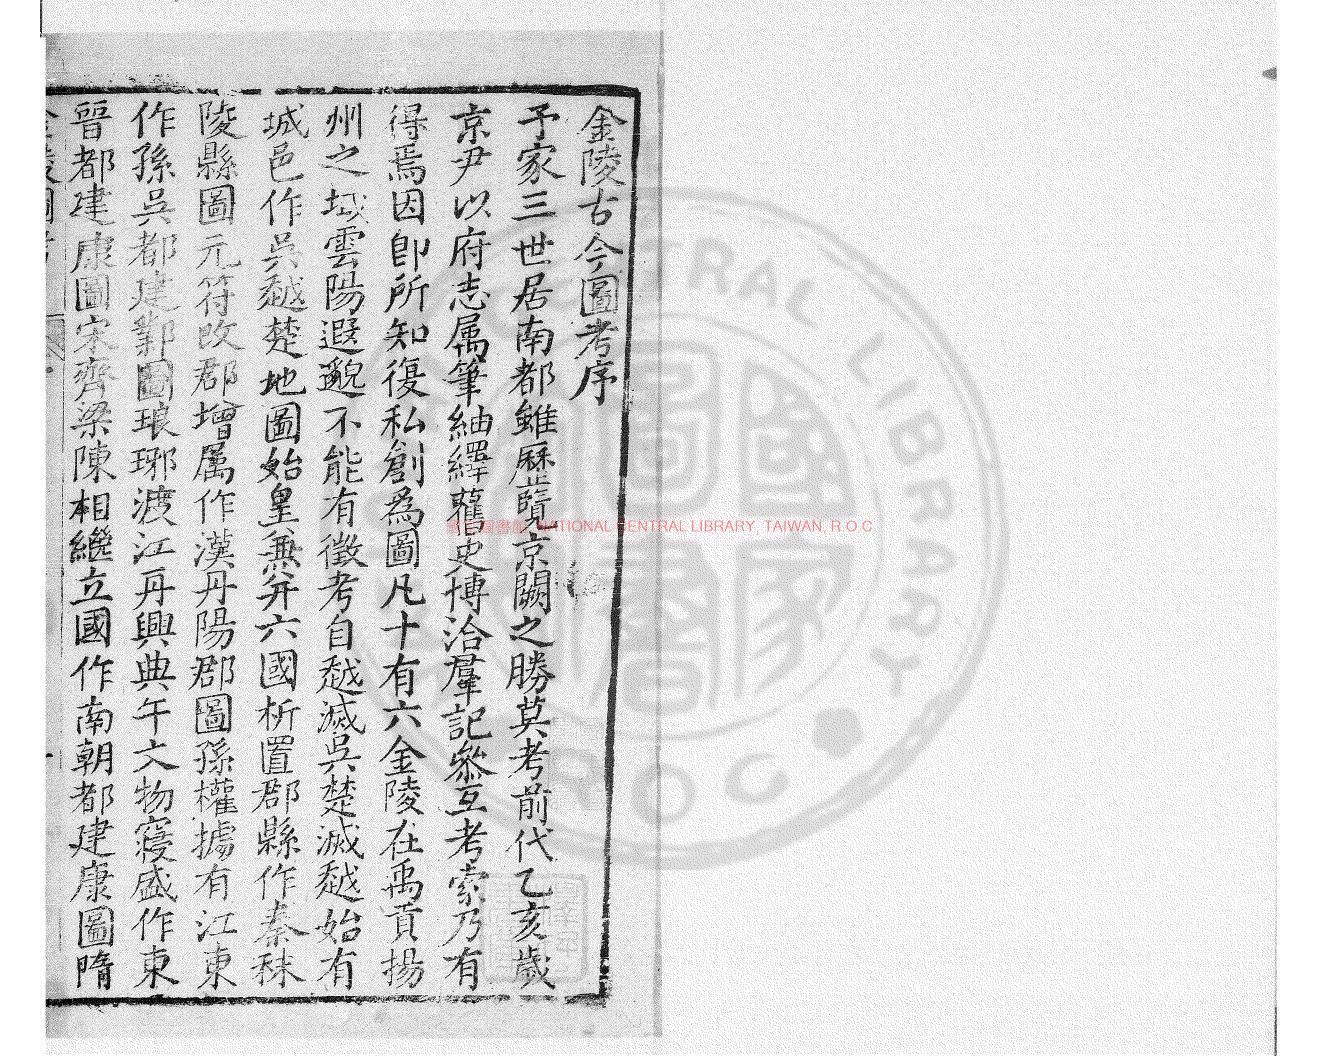 金陵古今圖考序
予家三世居南都雖歷覽京闕之勝莫考前代乙亥歲
京尹以府志属筆紬繹舊史博洽羣記叅互考索乃有
得焉因卽所知復私創爲圖凡十有六金陵在禹貢揚
州之域雲陽遐邈不能有徵考自越滅吳楚滅越始有
城邑作吳越楚地圖始皇兼并六國析置郡縣作秦秣
陵縣圖元符改郡增属作漢丹陽郡圖孫權據有江東
作孫吳都建鄴圖琅琊渡江再興典午文物寖盛作東
晉都建康圖宋齊梁陳相繼立國作南朝都建康圖隋
國立中央圖書館 NATIONAL CENTRAL LIBRARY, TAIWAN, R.O.C
CENTRAL LIBRARY
R O C
國家圖書